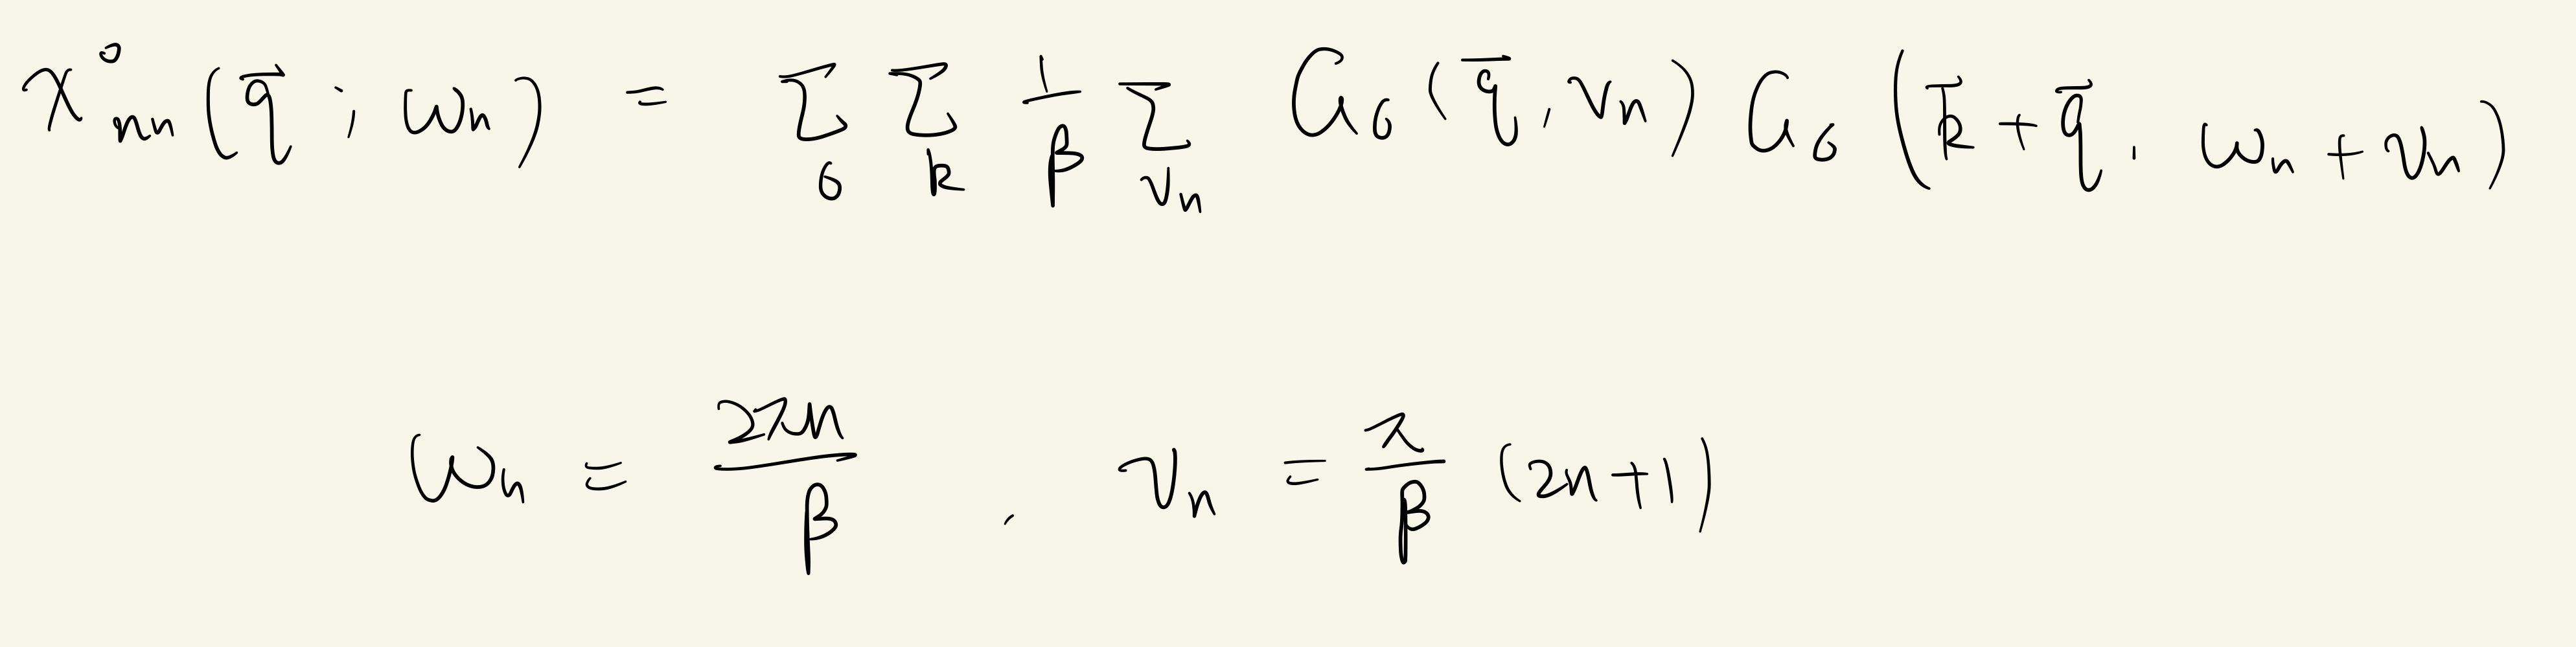 χ⁰ₙₙ(q⃗ ; ωₙ) = Σ_σ Σ_k 1/β Σ_νₙ G_σ(q⃗, νₙ) G_σ(k⃗ + q⃗, ωₙ + νₙ)
ωₙ = 2πn/β , νₙ = π/β (2n+1)